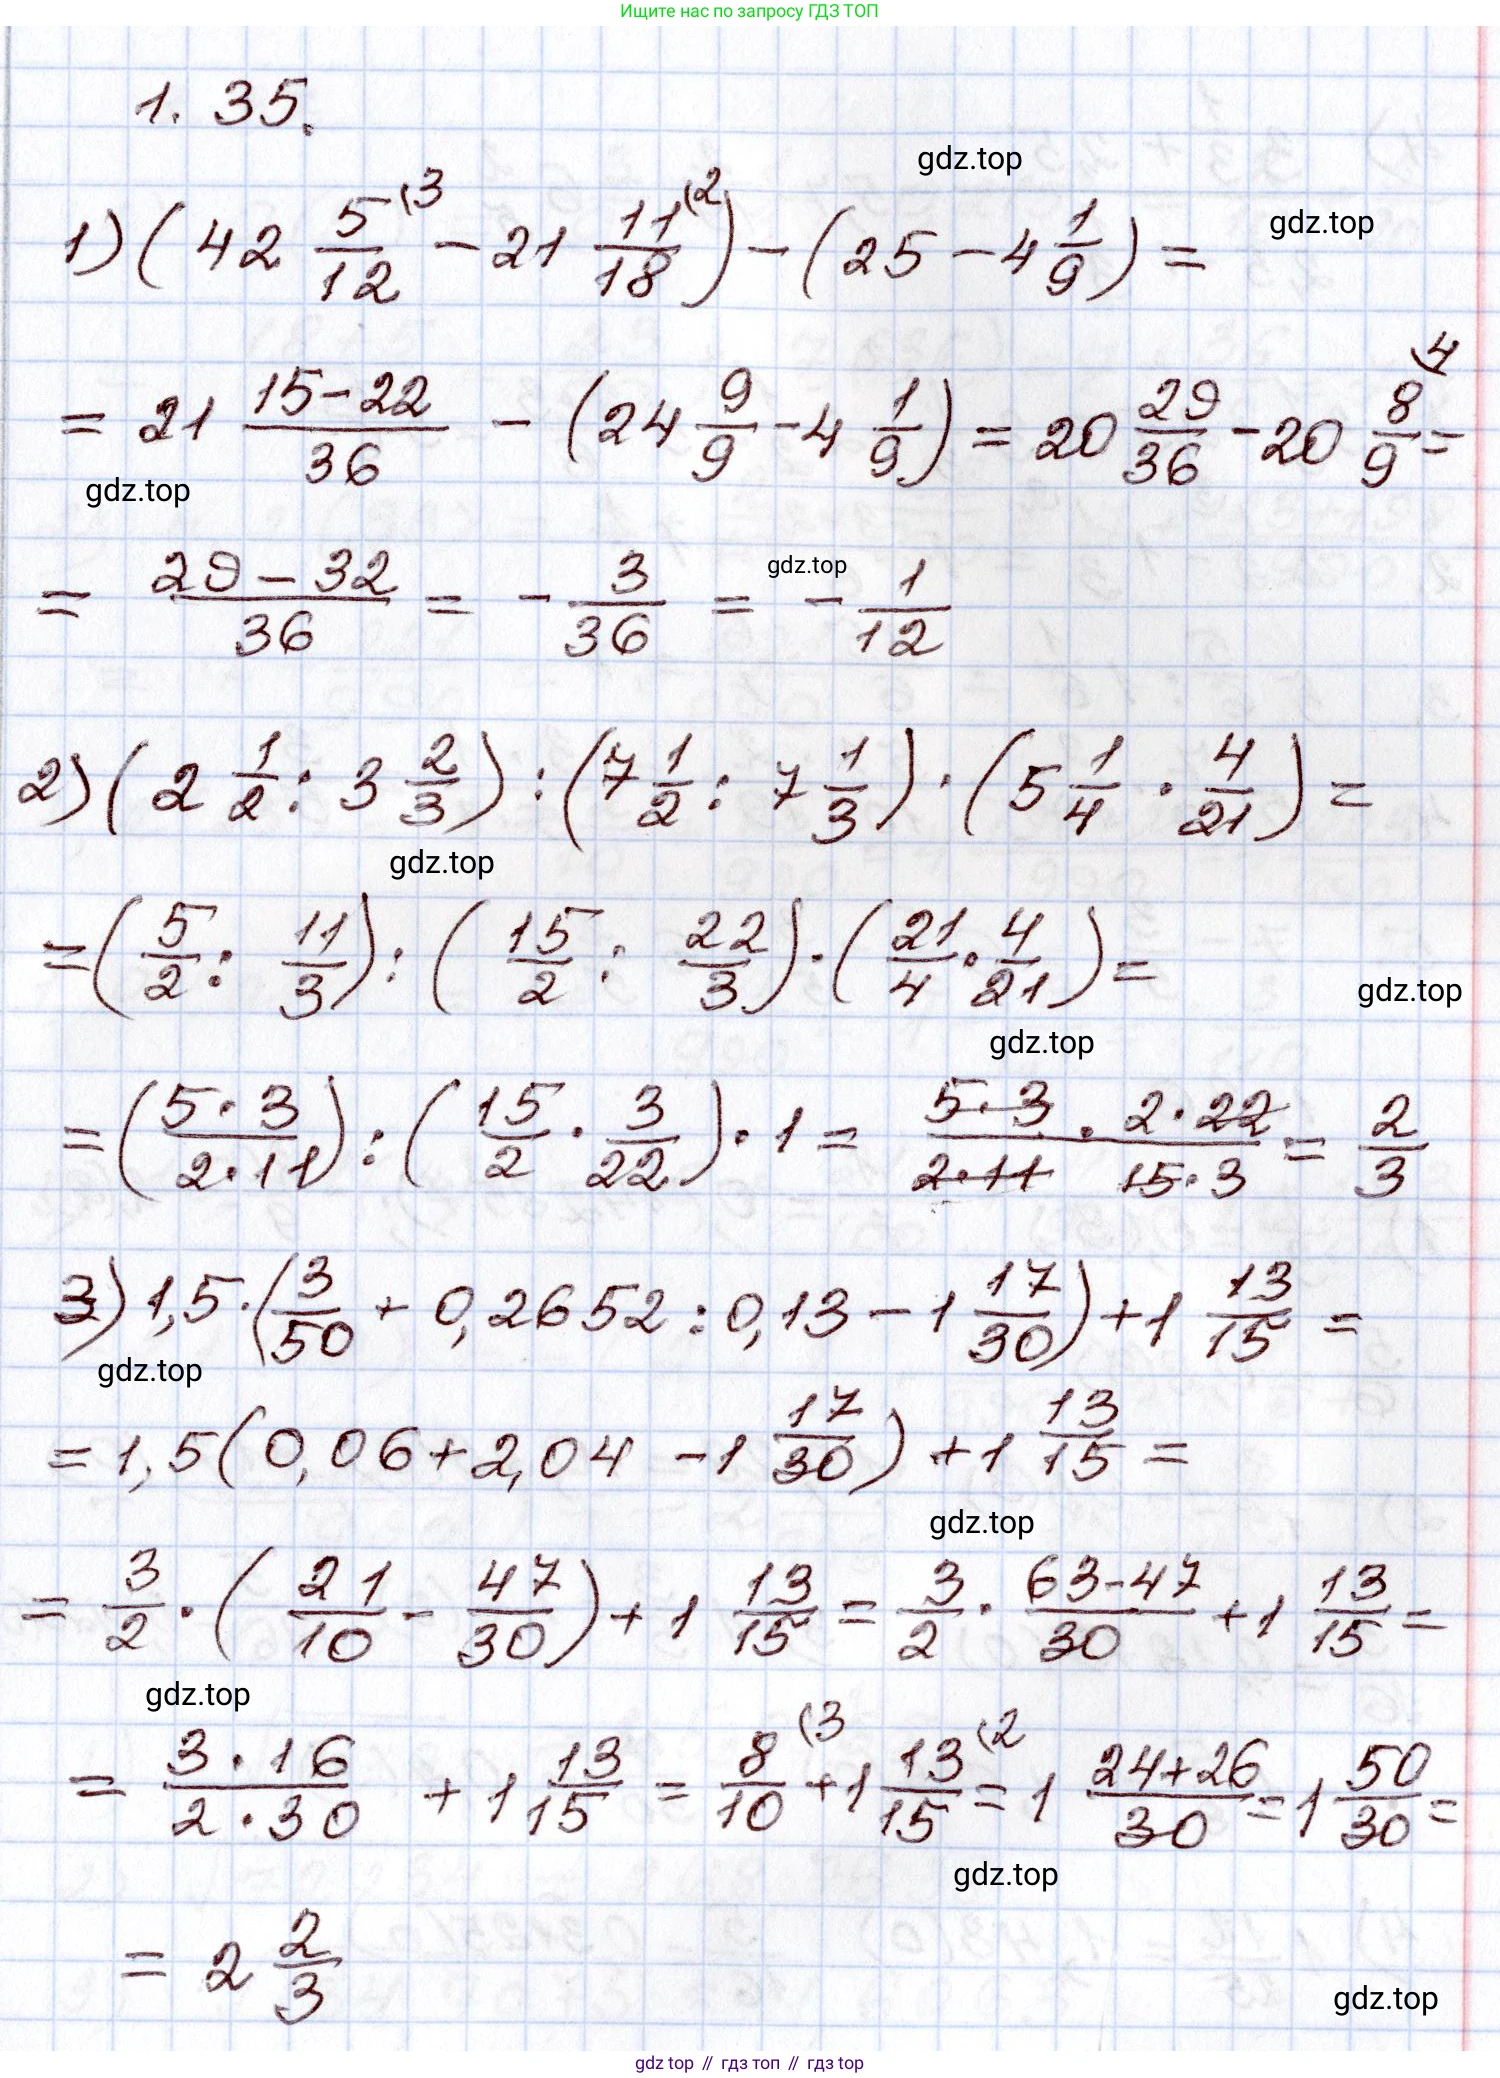 Ищите нас по запросу ГДЗ ТОП
1.35.
gdz.top
gdz.top
1) (42 5/12 (3 - 21 11/18 (2) - (25 - 4 1/9) =
= 21 (15-22)/36 - (24 9/9 - 4 1/9) = 20 29/36 - 20 8/9 (4 =
gdz.top
= (29-32)/36 = - 3/36 = - 1/12
gdz.top
2) (2 1/2 : 3 2/3) : (7 1/2 : 7 1/3) · (5 1/4 · 4/21) =
gdz.top
= (5/2 : 11/3) : (15/2 : 22/3) · (21/4 · 4/21) =
gdz.top
gdz.top
= ((5·3)/(2·11)) : (15/2 · 3/22) · 1 = (5·3)/(2·11) · (2·22)/(15·3) = 2/3
3) 1,5·(3/50 + 0,2652 : 0,13 - 1 17/30) + 1 13/15 =
gdz.top
= 1,5(0,06+2,04 - 1 17/30) + 1 13/15 =
gdz.top
= 3/2 · (21/10 - 47/30) + 1 13/15 = 3/2 · (63-47)/30 + 1 13/15 =
gdz.top
= (3·16)/(2·30) + 1 13/15 = 8/10 (3 + 1 13/15 (2 = 1 (24+26)/30 = 1 50/30 =
gdz.top
= 2 2/3
gdz.top
gdz top // гдз топ // гдз top